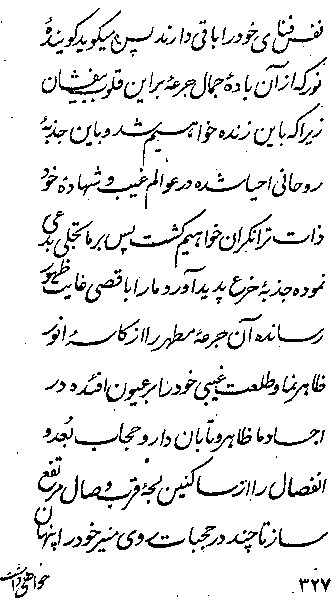 نفس فنای خود را باقی دارند پس میگوید گوینده
نور که از آن باده جمال جرعه بر این قلوب بیفشان
زیرا که باین زنده خواهیم شد و باین جذبهٔ
روحانی احیا شده در عوالم غیب و شهاده خود
ذات ترا نگران خواهیم گشت پس بر ما تجلی بدعی
نموده جذبهٔ خرع پدید آور و ما را باقصی غایت ظهور
رسانده آن جرعهٔ مطهر را از کاسهٔ انور
ظاهر نما و طلعت غیبی خود را بر عیون افئده در
اجساد ما ظاهر و تابان دار و حجاب بُعد و
انفصال را از ساکنین لجهٔ قرب و وصال مرتفع
ساز تا چند در حجبات روی منیر خود را پنهان
خواهی داشت
۳۲۷